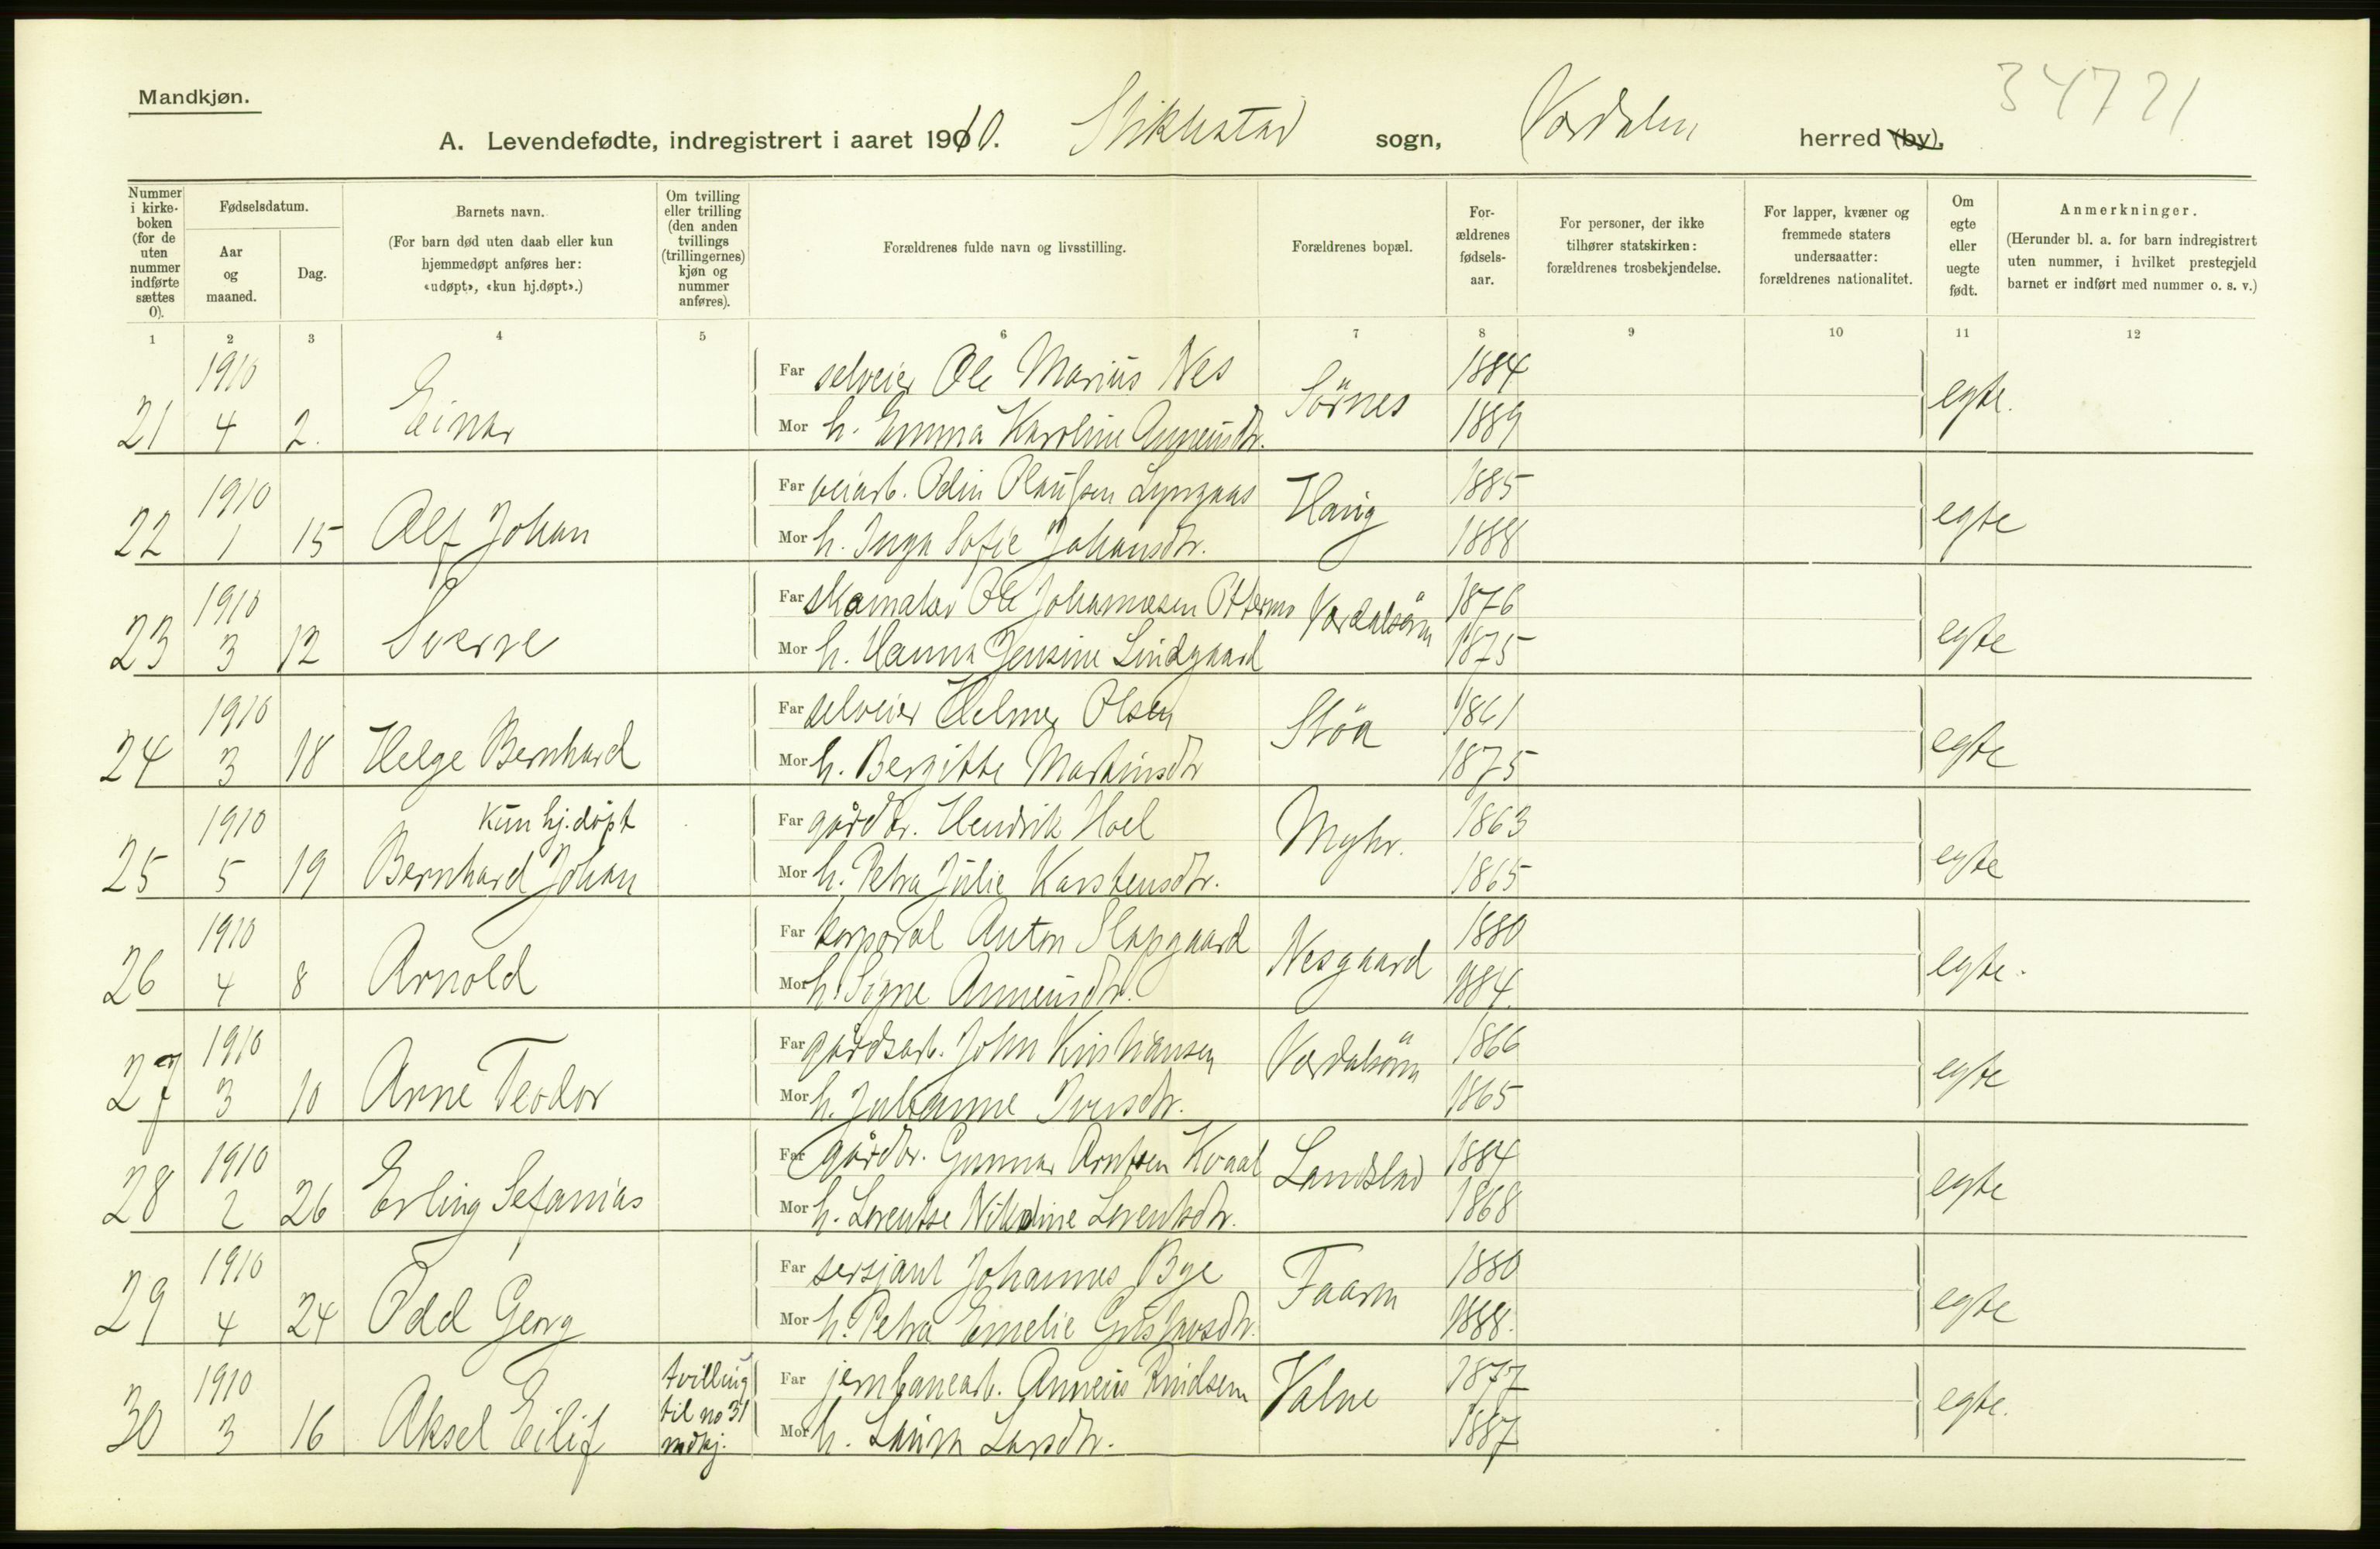 Mandkjøn.
34721
A. Levendefødte, indregistrert i aaret 1910. Stiklestad sogn, Værdalen herred (by).
Nummer i kirke-boken (for de uten nummer indførte sættes 0).
Fødselsdatum.
Aar og maaned.
Dag.
Barnets navn.
(For barn død uten daab eller kun hjemmedøpt anføres her: «udøpt», «kun hj.døpt».)
Om tvilling eller trilling (den anden tvillings (trillingernes) kjøn og nummer anføres).
Forældrenes fulde navn og livsstilling.
Forældrenes bopæl.
For-ældrenes fødsels-aar.
For personer, der ikke tilhører statskirken: forældrenes trosbekjendelse.
For lapper, kvæner og fremmede staters undersaatter: forældrenes nationalitet.
Om egte eller uegte født.
Anmerkninger.
(Herunder bl. a. for barn indregistrert uten nummer, i hvilket prestegjeld barnet er indført med nummer o. s. v.)
1 2 3 4 5 6 7 8 9 10 11 12
1910 Far selveier Ole Marius Nes 1884
21 4 2. Einar Sörnes egte.
Mor h. Emma Karoline Anneusdtr. 1889
1910 Far veiarb. Odin Olaussen Lyngaas 1885
22 1 15 Alf Johan Haug egte
Mor h. Inga Sofie Johansdtr. 1888
1910 Far skomaker Ole Johannesen Ottermo 1876
23 3 12 Sverre Værdalsörn egte
Mor h. Hanna Jensine Lindgaard 1875
1910 Far selveier Helmer Olsen 1861
24 3 18 Helge Bernhard Slöa egte
Mor h. Bergitte Martinsdtr 1875
1910 kun hj.døpt Far gårdbr. Hendrik Hoel 1863
25 5 19 Bernhard Johan Myhr. egte
Mor h. Petra Julie Karstensdtr. 1865
1910 Far korporal Anton Slapgaard 1880
26 4 8 Arnold Nesgaard egte.
Mor h. Signe Anneusdtr. 1884.
1910 Far gårdsarb. John Kristiansen 1866
27 3 10 Arne Teodor Værdalsörn egte
Mor h. Julianne Iversdtr. 1865
1910 Far gårdbr. Gunnar Arntsen Kvaal 1884
28 2 26 Erling Sefanias Landstad egte
Mor h. Lorentse Nikoline Lorentsdtr. 1868
1910 Far sersjant Johannes Bye 1880
29 4 24 Odd Georg Faarn egte
Mor h. Petra Emelie Gustavsdtr. 1888.
1910 tvilling Far jernbanearb. Anneus Knudsen 1877
30 3 16 Aksel Eilif til no 31 mdkj. Valne egte.
Mor h. Laura Larsdtr. 1887